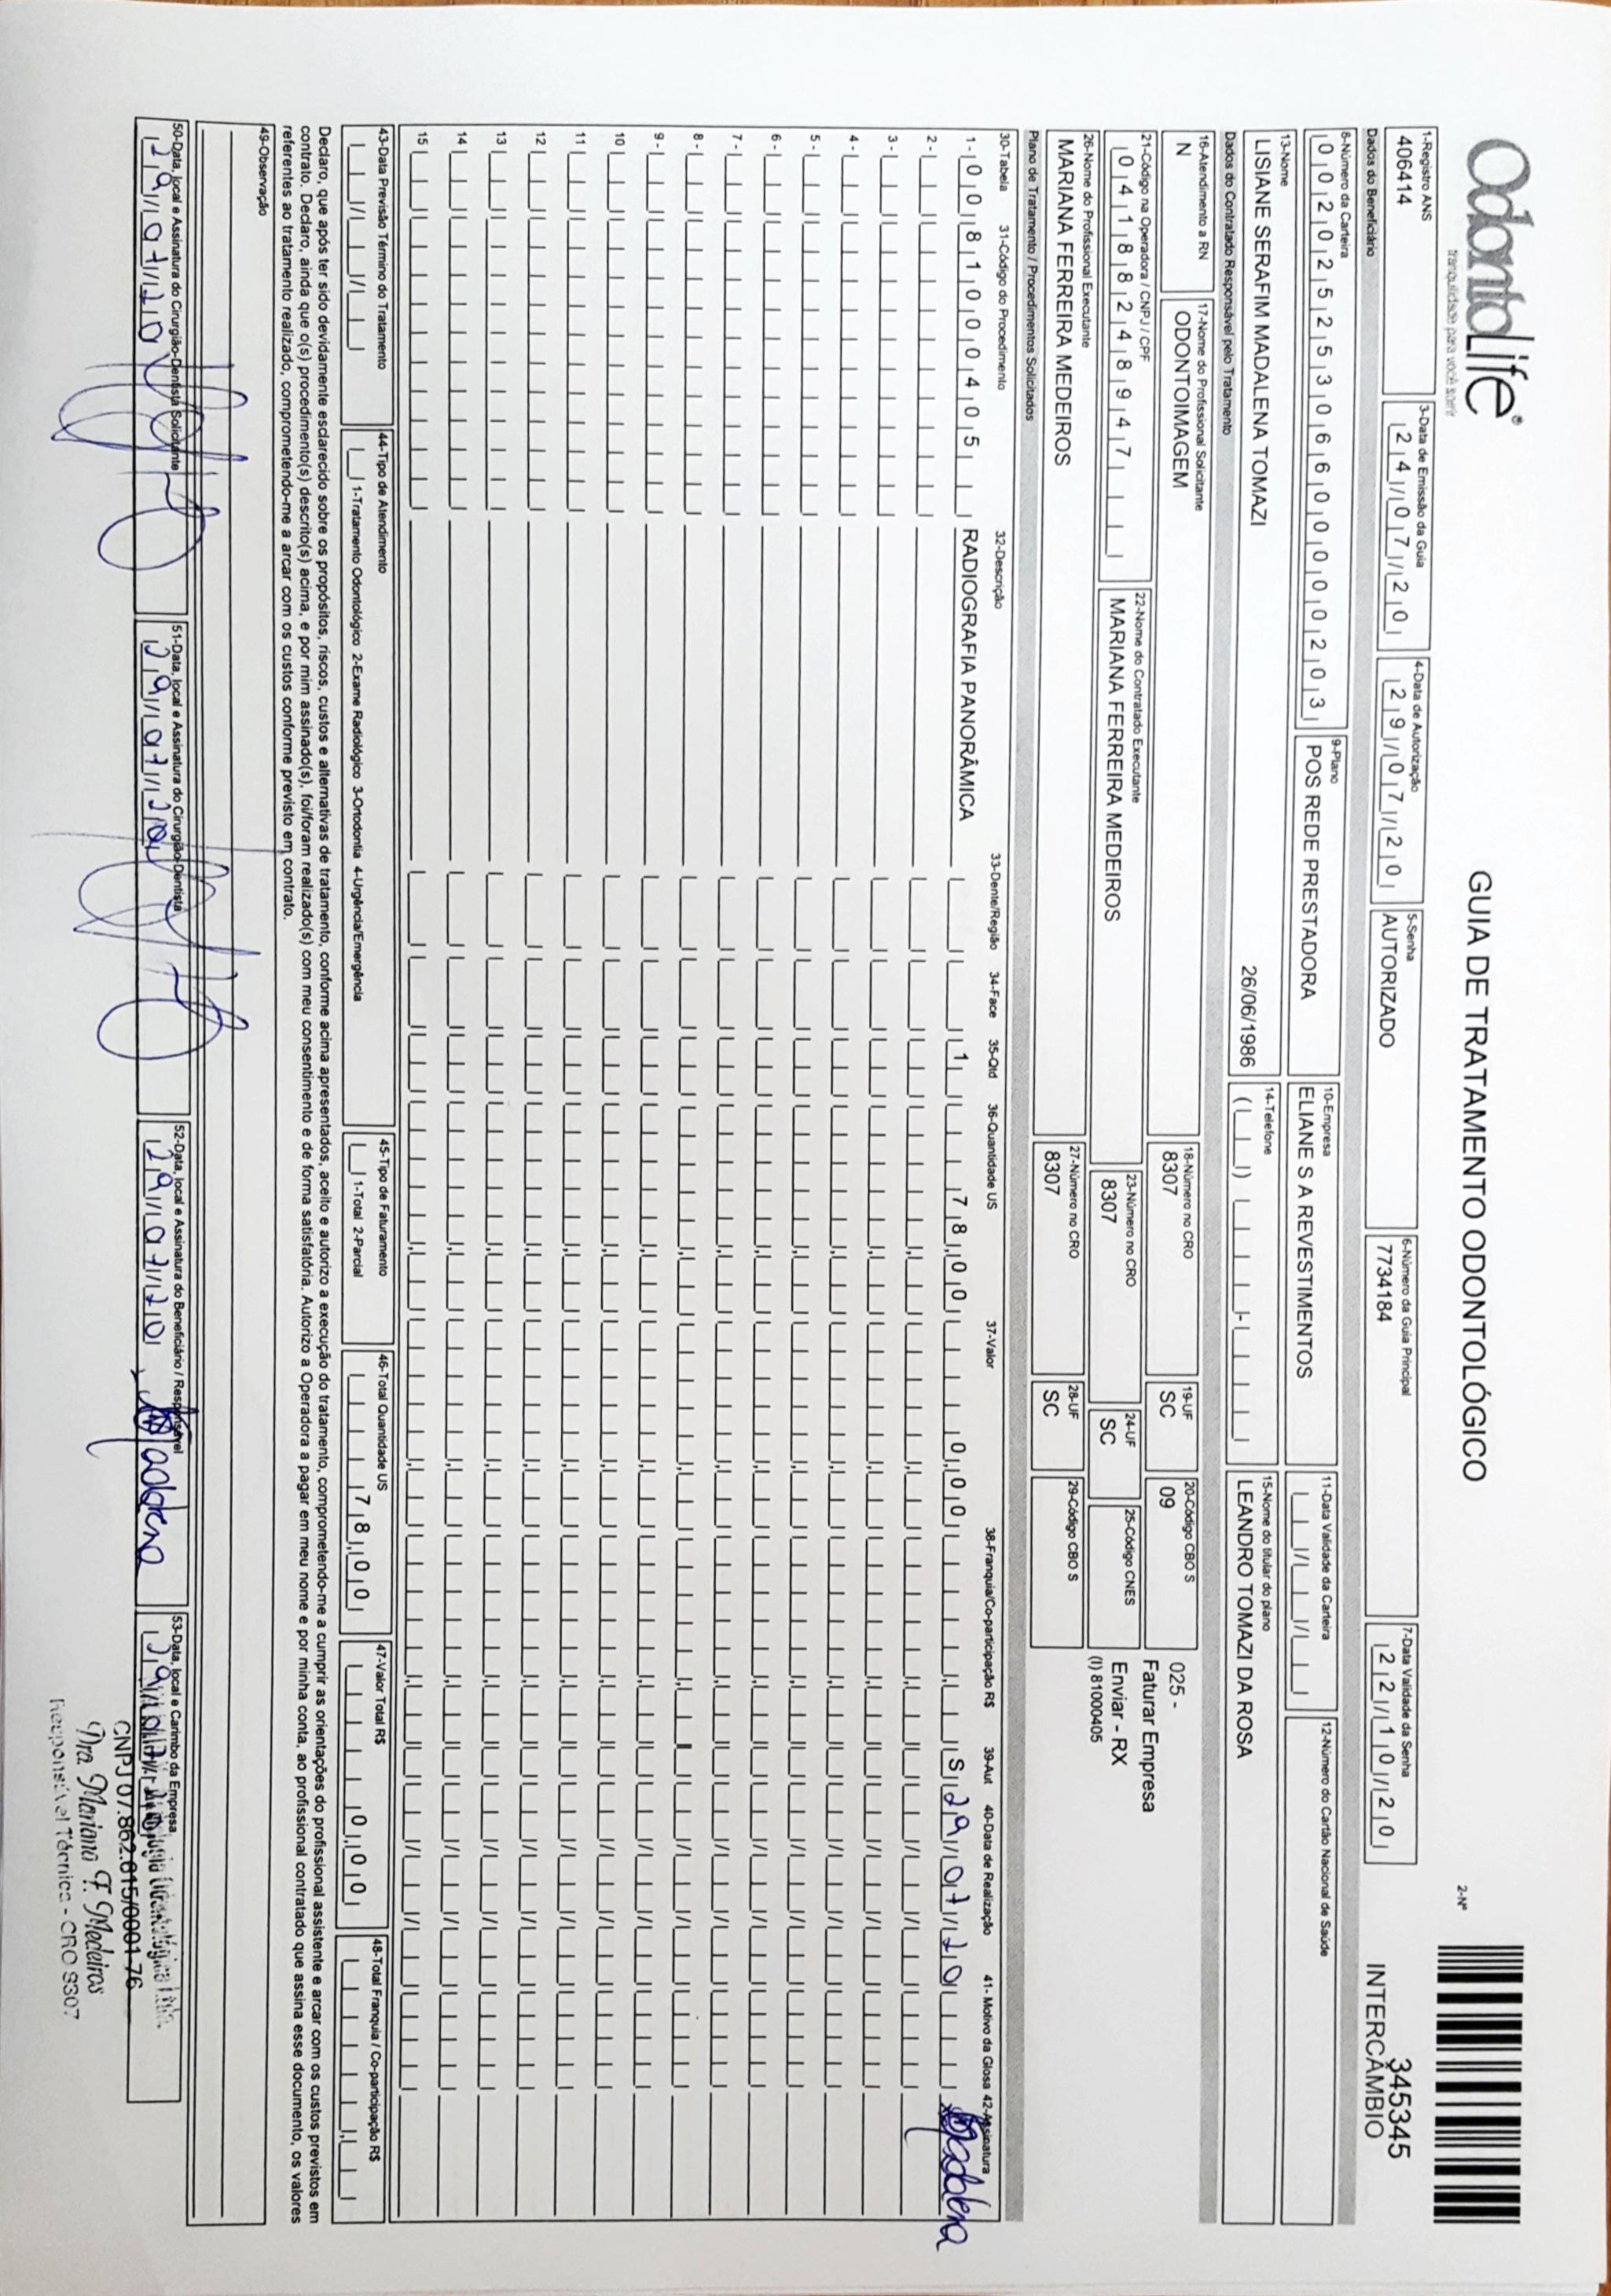 OdontoLife®
tranquilidade para você sorrir
GUIA DE TRATAMENTO ODONTOLÓGICO
2-Nº
345345
INTERCÂMBIO
1-Registro ANS
406414
3-Data de Emissão da Guia
24/07/20
4-Data de Autorização
29/07/20
5-Senha
AUTORIZADO
6-Número da Guia Principal
7734184
7-Data Validade da Senha
22/10/20
Dados do Beneficiário
8-Número da Carteira
00202525306600000203
9-Plano
POS REDE PRESTADORA
10-Empresa
ELIANE S A REVESTIMENTOS
11-Data Validade da Carteira
12-Número do Cartão Nacional de Saúde
13-Nome
LISIANE SERAFIM MADALENA TOMAZI
26/06/1986
14-Telefone
15-Nome do titular do plano
LEANDRO TOMAZI DA ROSA
Dados do Contratado Responsável pelo Tratamento
16-Atendimento a RN
N
17-Nome do Profissional Solicitante
ODONTOIMAGEM
18-Número no CRO
8307
19-UF
SC
20-Código CBO S
09
025 -
Faturar Empresa
Enviar - RX
(I) 81000405
21-Código na Operadora / CNPJ / CPF
04188248947
22-Nome do Contratado Executante
MARIANA FERREIRA MEDEIROS
23-Número no CRO
8307
24-UF
SC
25-Código CNES
26-Nome do Profissional Executante
MARIANA FERREIRA MEDEIROS
27-Número no CRO
8307
28-UF
SC
29-Código CBO S
Plano de Tratamento / Procedimentos Solicitados
30-Tabela 31-Código do Procedimento 32-Descrição 33-Dente/Região 34-Face 35-Qtd 36-Quantidade US 37-Valor 38-Franquia/Co-participação R$ 39-Aut 40-Data de Realização 41- Motivo da Glosa 42-Assinatura
1- 00 81000405 RADIOGRAFIA PANORÂMICA 1 78,00 0,00 S 29/07/20 Madalena
2 -
3 -
4 -
5 -
6 -
7 -
8 -
9 -
10
11
12
13
14
15
43-Data Previsão Término do Tratamento
44-Tipo de Atendimento
1-Tratamento Odontológico 2-Exame Radiológico 3-Ortodontia 4-Urgência/Emergência
45-Tipo de Faturamento
1-Total 2-Parcial
46-Total Quantidade US
78,00
47-Valor Total R$
0,00
48-Total Franquia / Co-participação R$
Declaro, que após ter sido devidamente esclarecido sobre os propósitos, riscos, custos e alternativas de tratamento, conforme acima apresentados, aceito e autorizo a execução do tratamento, comprometendo-me a cumprir as orientações do profissional assistente e arcar com os custos previstos em
contrato. Declaro, ainda que o(s) procedimento(s) descrito(s) acima, e por mim assinado(s), foi/foram realizado(s) com meu consentimento e de forma satisfatória. Autorizo a Operadora a pagar em meu nome e por minha conta, ao profissional contratado que assina esse documento, os valores
referentes ao tratamento realizado, comprometendo-me a arcar com os custos conforme previsto em contrato.
49-Observação
50-Data, local e Assinatura do Cirurgião-Dentista Solicitante
29/07/20
51-Data, local e Assinatura do Cirurgião-Dentista
29/07/20
52-Data, local e Assinatura do Beneficiário / Responsável
29/07/20 Madalena
53-Data, local e Carimbo da Empresa
29/07/20
CNPJ 07.862.615/0001-76
Dra. Mariana F. Medeiros
Responsável Técnica - CRO 8307